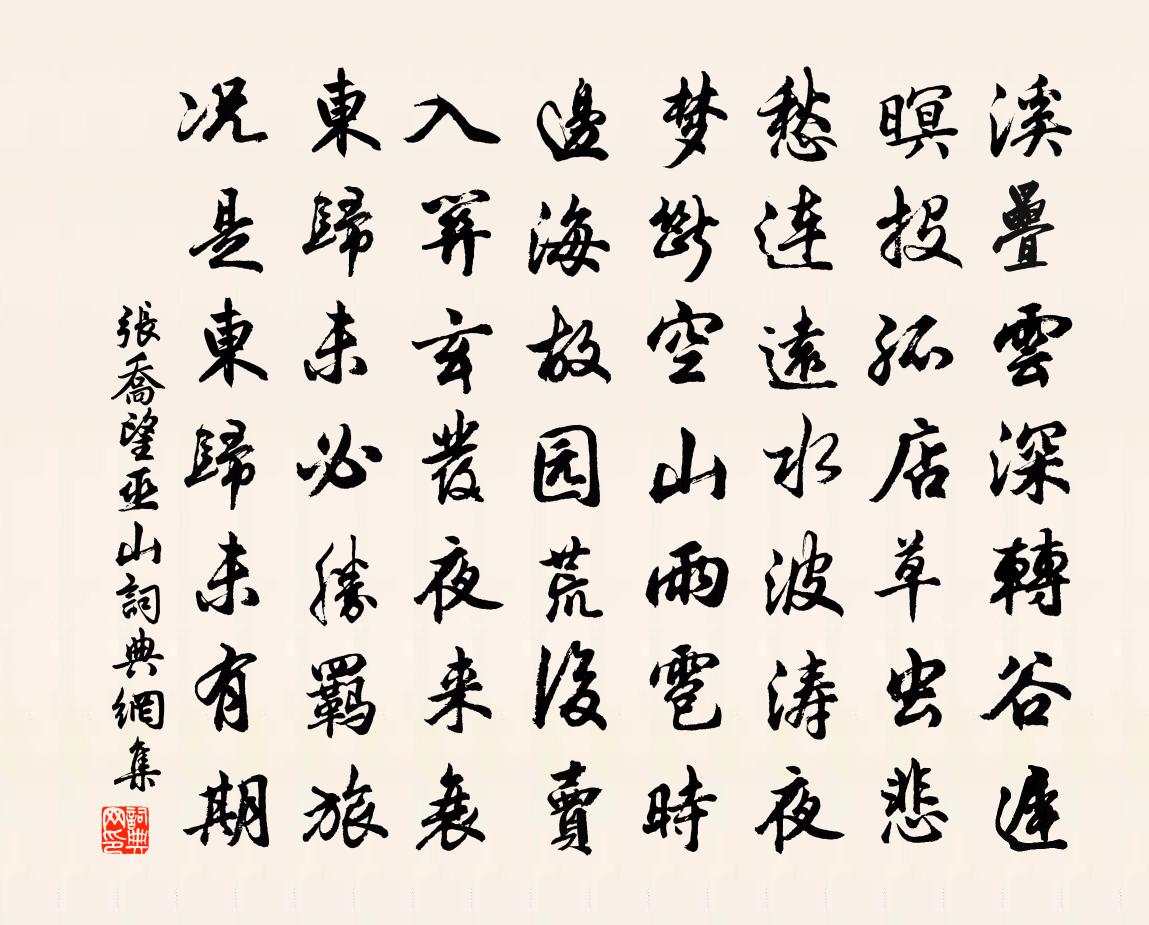 溪疊雲深轉谷遲
暝投孤店草虫悲
愁連遠水波涛夜
梦斷空山雨雹時
邊海故园荒後賣
入関玄發夜来衰
東歸未必勝羈旅
况是東歸未有期
張喬望巫山詞典網集
詞典网印